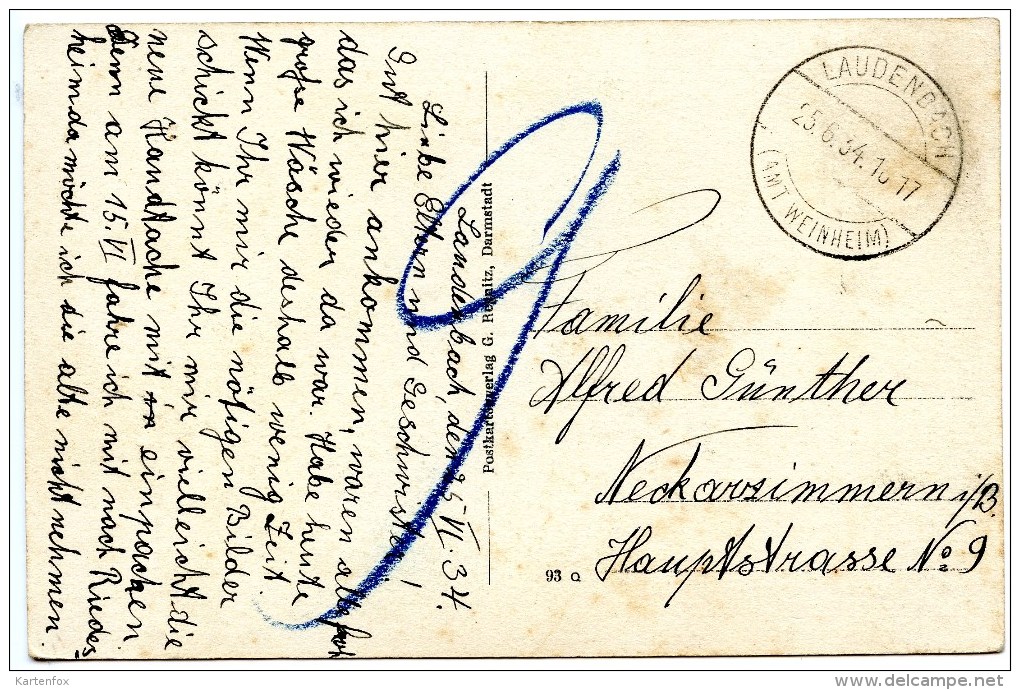 Laudenbach, den 25. VI. 34.
Liebe Eltern und Geschwister!
Gut hier ankommen, waren alle froh
das ich wieder da war. Habe heute
große Wäsche deshalb wenig Zeit.
Wenn Ihr mir die nötigen Bilder
schickt könnt Ihr mir vielleicht die
neue Handtasche mit einpacken.
Denn am 15. VI fahre ich mit nach Riedes-
heim da möchte ich die alte nicht nehmen.
Postkartenverlag G. Rentitz, Darmstadt
93 Q
LAUDENBACH
25.6.34.16-17
(AMT WEINHEIM)
Familie
Alfred Günther
Neckarzimmern i/B.
Hauptstrasse No 9
9
Kartenfox
delcampe.net